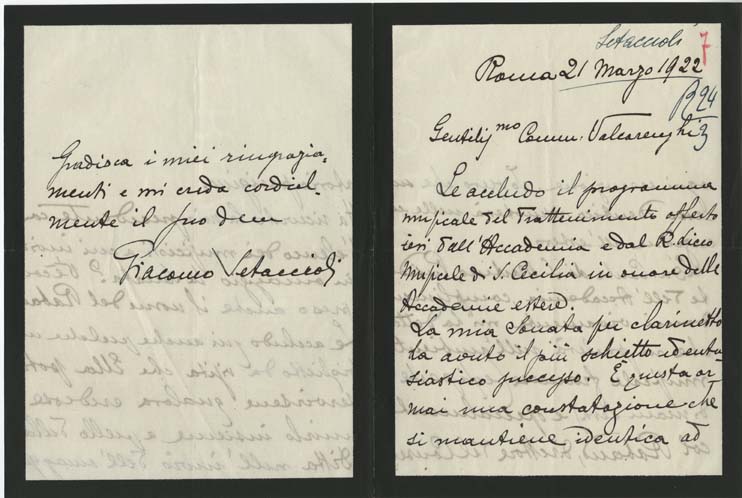 Setaccioli 7
Roma 21 Marzo 1922
R 24
3
Gentiliss.mo Comm. Valcarenghi
Le accludo il programma
musicale del Trattenimento offerto
ieri dall'Accademia e dal R. Liceo
Musicale di S. Cecilia in onore delle
Accademie estere.
La mia Sonata per clarinetto
ha avuto il più schietto ed entu-
siastico successo. È questa or
mai una constatazione che
si mantiene identica ad
Gradisca i miei ringrazia-
menti e mi creda cordial-
mente il suo dev
Giacomo Setaccioli